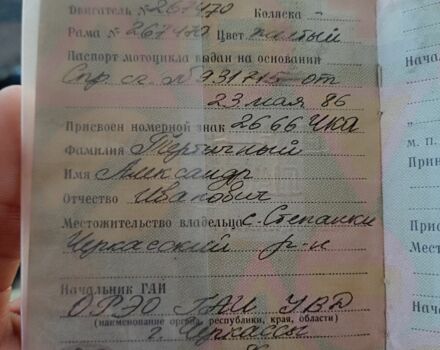 Двигатель № 267470 Коляска –
Рама № 267470 Цвет желтый
Паспорт мотоцикла выдан на основании
Спр. сч. № 931715 от
23 мая 86
Присвоен номерной знак 2666 ЧКА
Фамилия
Имя Александр
Отчество Иванович
Местожительство владельца с. Степанки
Черкасский р-н
Начальник ГАИ
ОРЭО ГАИ УВД
(наименование органа, республики, края, области)
г. Черкассы
Нача
м. п.
Прин
Прис
Мест
Нача